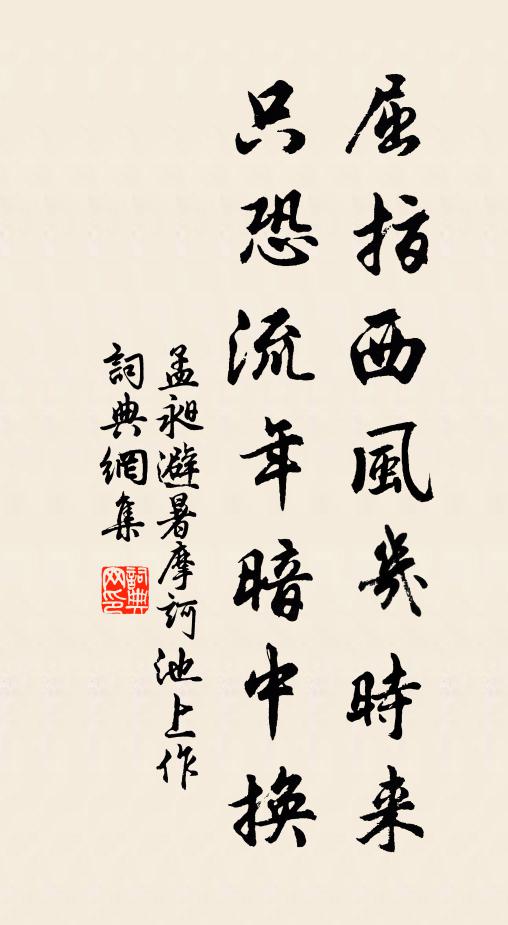 屈指西風幾時来
只恐流年暗中換
孟昶避暑摩訶池上作
詞典網集
詞典
网印